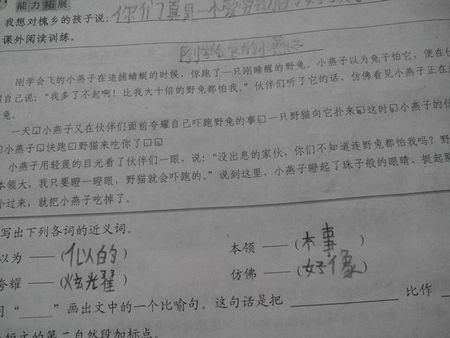 能力拓展
我想对槐乡的孩子说：你们真是
课外阅读训练。
刚学会飞的小燕子
刚学会飞的小燕子在追捕蜻蜓的时候，惊跑了一只刚睡醒的野兔。小燕子以为兔子怕它，便在伙
耀自己说：“我多了不起啊！比我大十倍的野兔都怕我。”伙伴们听了它的话，仿佛看见小燕子正在
兔。
一天□小燕子又在伙伴们面前夸耀自己吓跑野兔的事□一只野猫向它扑来□这时□小燕子的伙
□小燕子□快跑□野猫来吃你了□□
小燕子用轻蔑的目光看了伙伴们一眼，说：“没出息的家伙，你们不知道连野兔都怕我吗？野
本领大，我只要瞪一瞪眼，野猫就会吓跑的。”说到这里，小燕子瞪起了珠子般的眼睛，挺起
过来，就把小燕子吃掉了。
写出下列各词的近义词。
以为 ——（似的） 本领 ——（本事）
夸耀 ——（炫光耀） 仿佛 ——（好像）
用“____”画出文中的一个比喻句。这句话是把 ____ 比作
短文的第二自然段加标点。